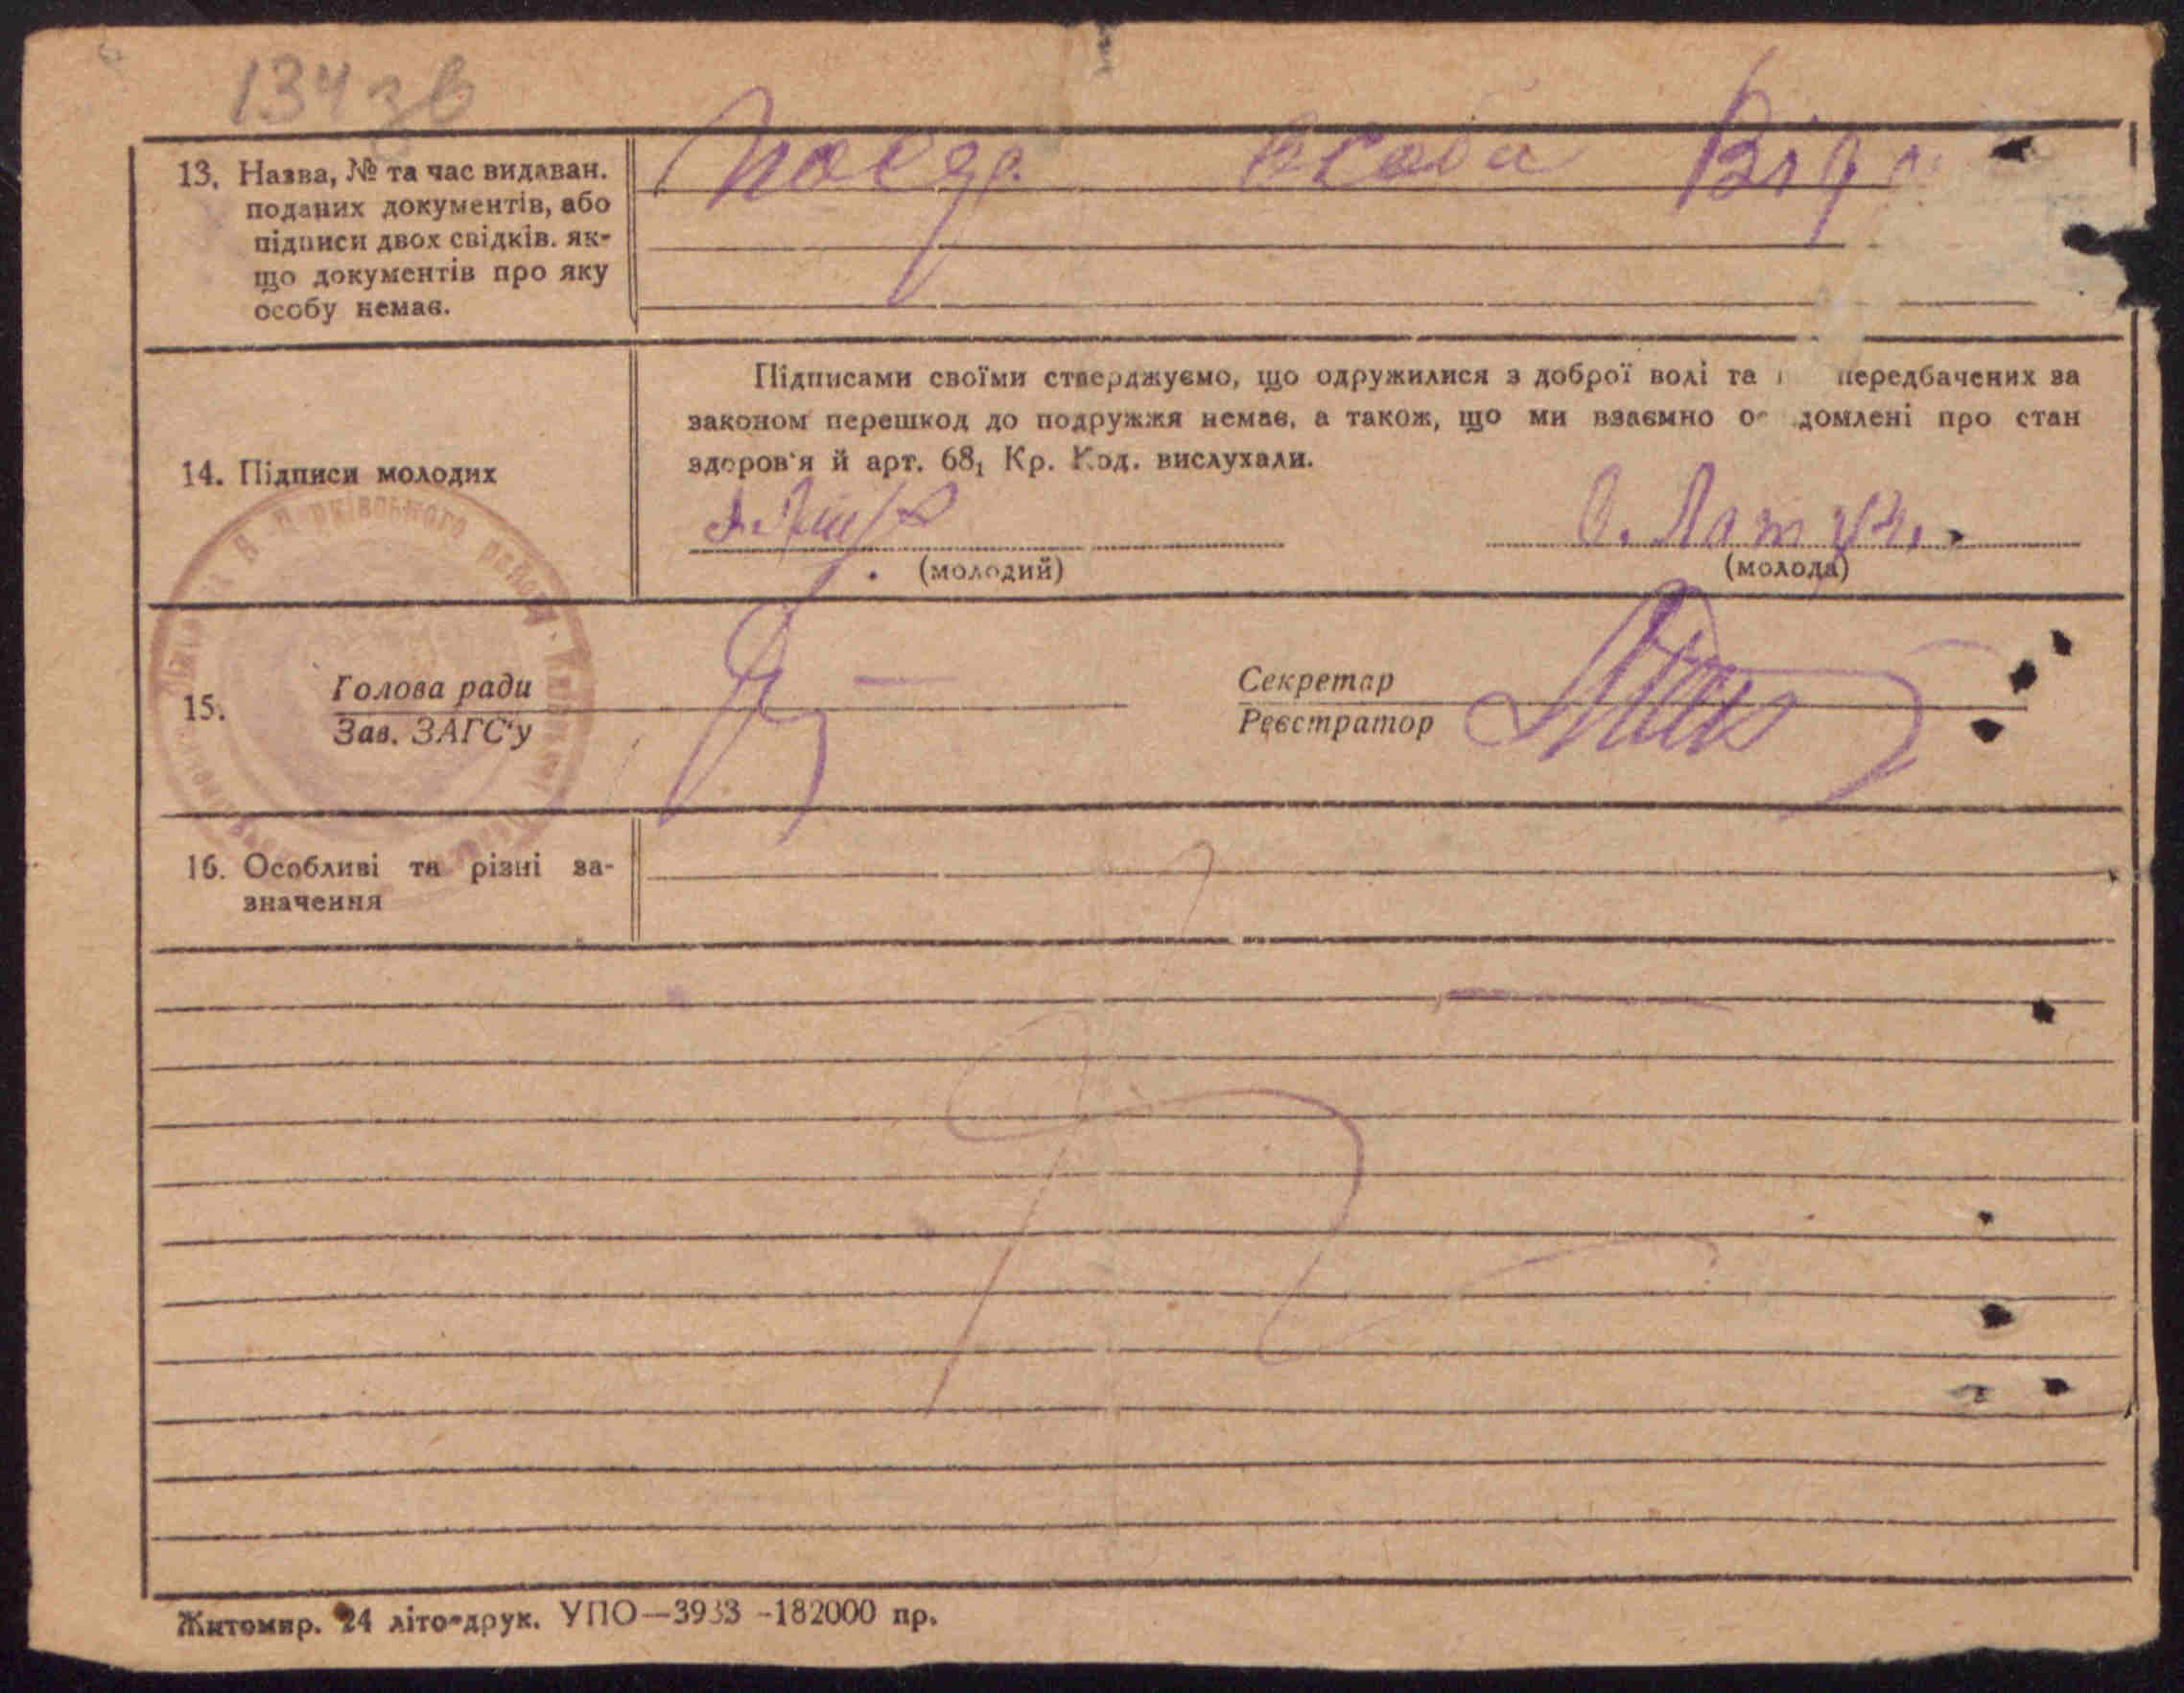 134 зв
13. Назва, № та час видаван.
поданих документів, або
підписи двох свідків. як-
що документів про яку
особу немає.
особи
14. Підписи молодих
Підписами своїми стверджуємо, що одружилися з доброї волі та передбачених за
законом перешкод до подружжя немає, а також, що ми взаємно домлені про стан
здоров'я й арт. 68₁ Кр. Код. вислухали.
(молодий)
(молода)
15.
Голова ради
Зав. ЗАГС'у
Секретар
Реєстратор
16. Особливі та різні за-
значення
Житомир. 24 літо-друк. УПО—3933 -182000 пр.